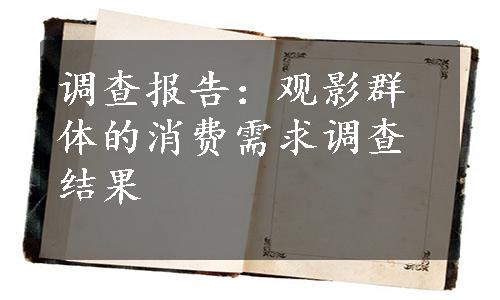 调查报告：观影群
体的消费需求调查
结果